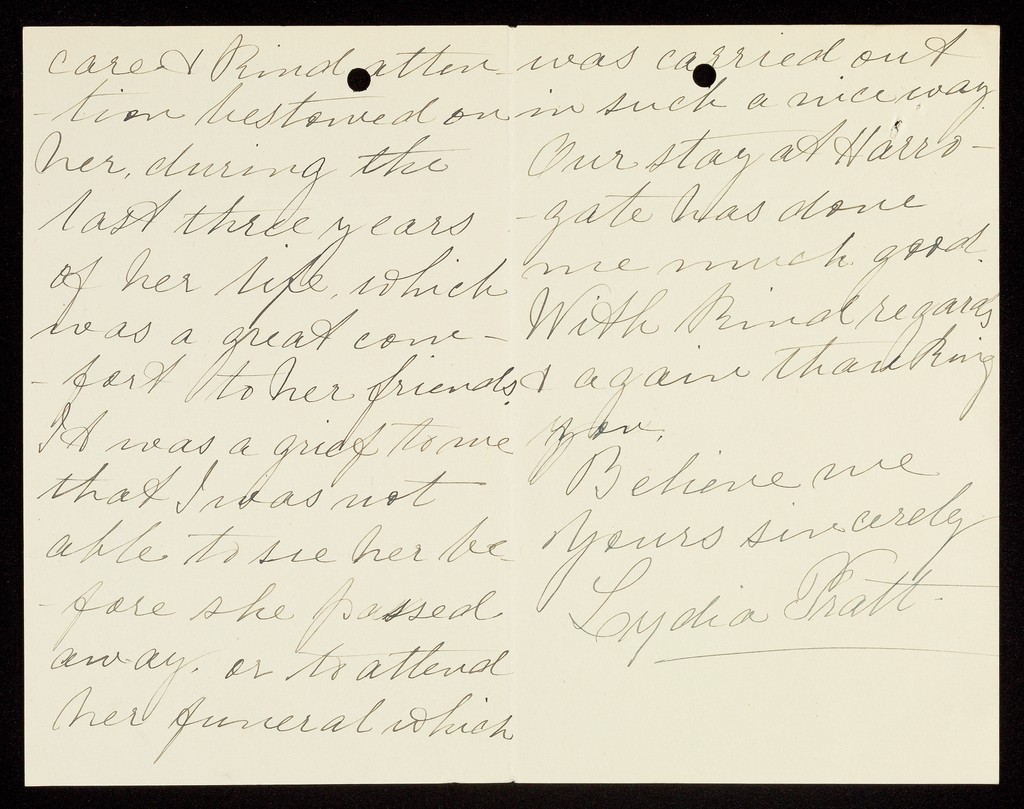 care & kind atten-
-tion bestowed on
her, during the
last three years
of her life, which
was a great com-
-fort to her friends.
It was a grief to me
that I was not
able to see her be-
-fore she passed
away, or to attend
her funeral which
was carried out
in such a nice way.
Our stay at Harro-
-gate has done
me much good.
With kind regards
& again thanking
you,
Believe me
Yours sincerely
Lydia Pratt.